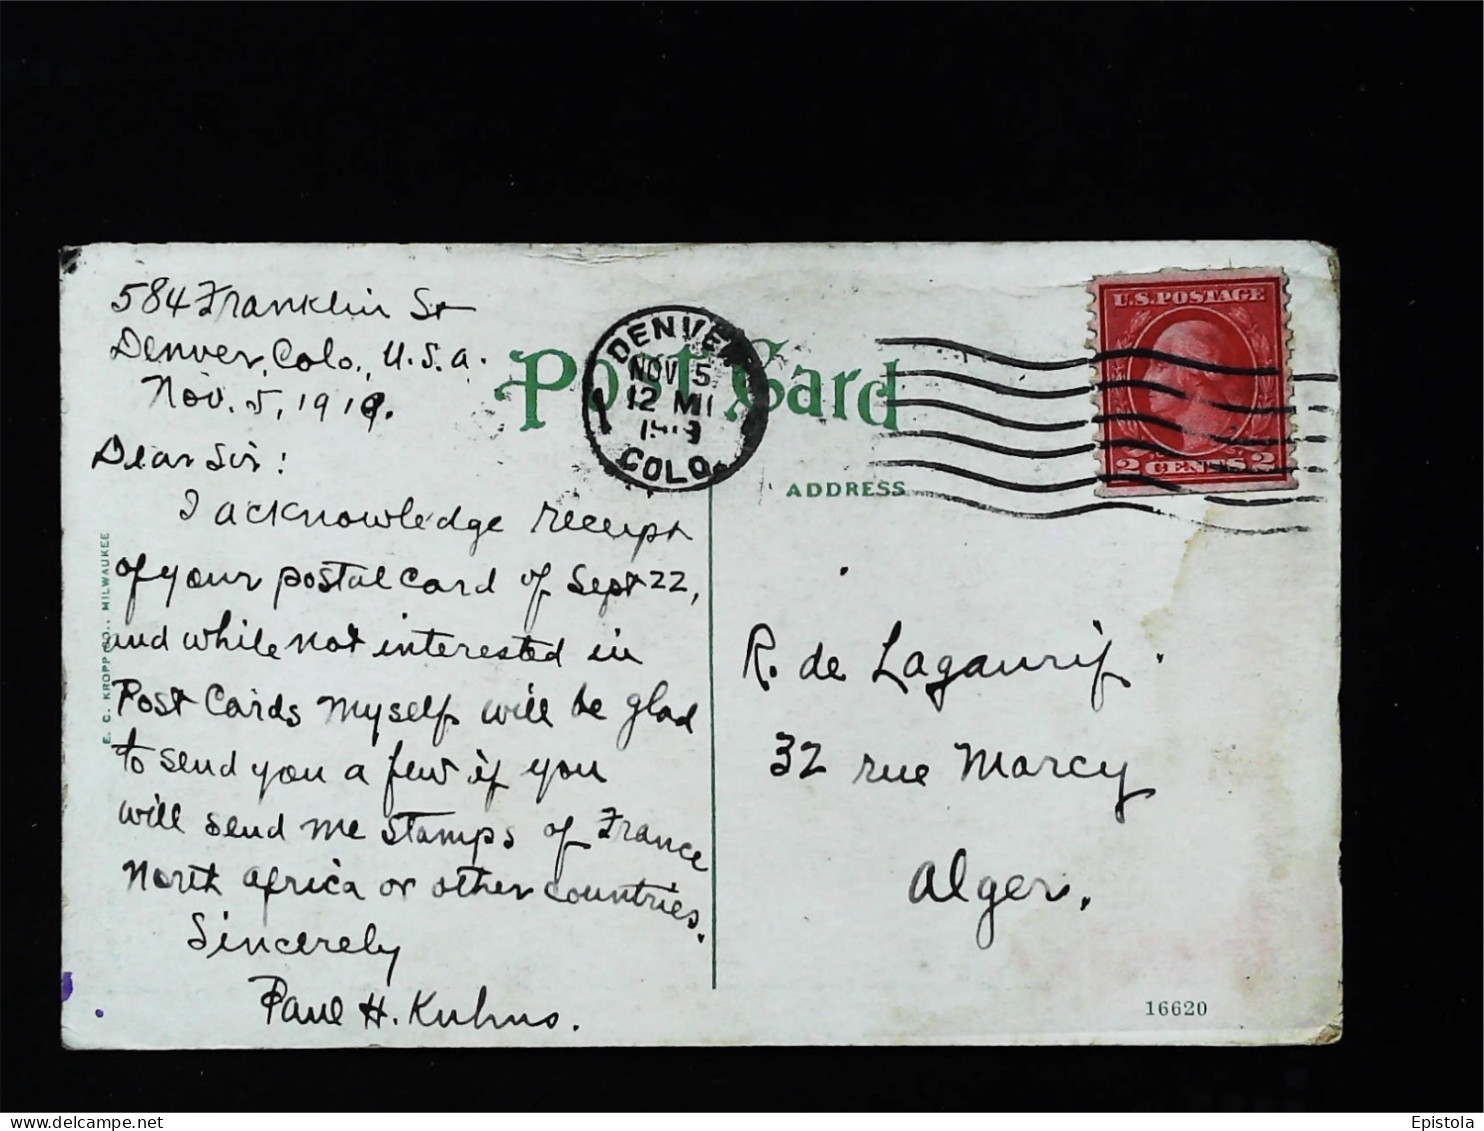 584 Franklin St
Denver, Colo., U.S.A.
Nov. 5, 1919.
Dear Sir:
I acknowledge receipt
of your postal card of Sept 22,
and while not interested in
Post Cards myself will be glad
to send you a few if you
will send me stamps of France
North Africa or other countries.
Sincerely
Paul H. Kuhns.
E. C. KROPP CO., MILWAUKEE
Post Card
DENVER
NOV 5
12 M
1919
COLO.
1
U.S. POSTAGE
2 CENTS 2
ADDRESS
R. de
32 rue Marcy
Alger.
16620
delcampe.net
Epistola